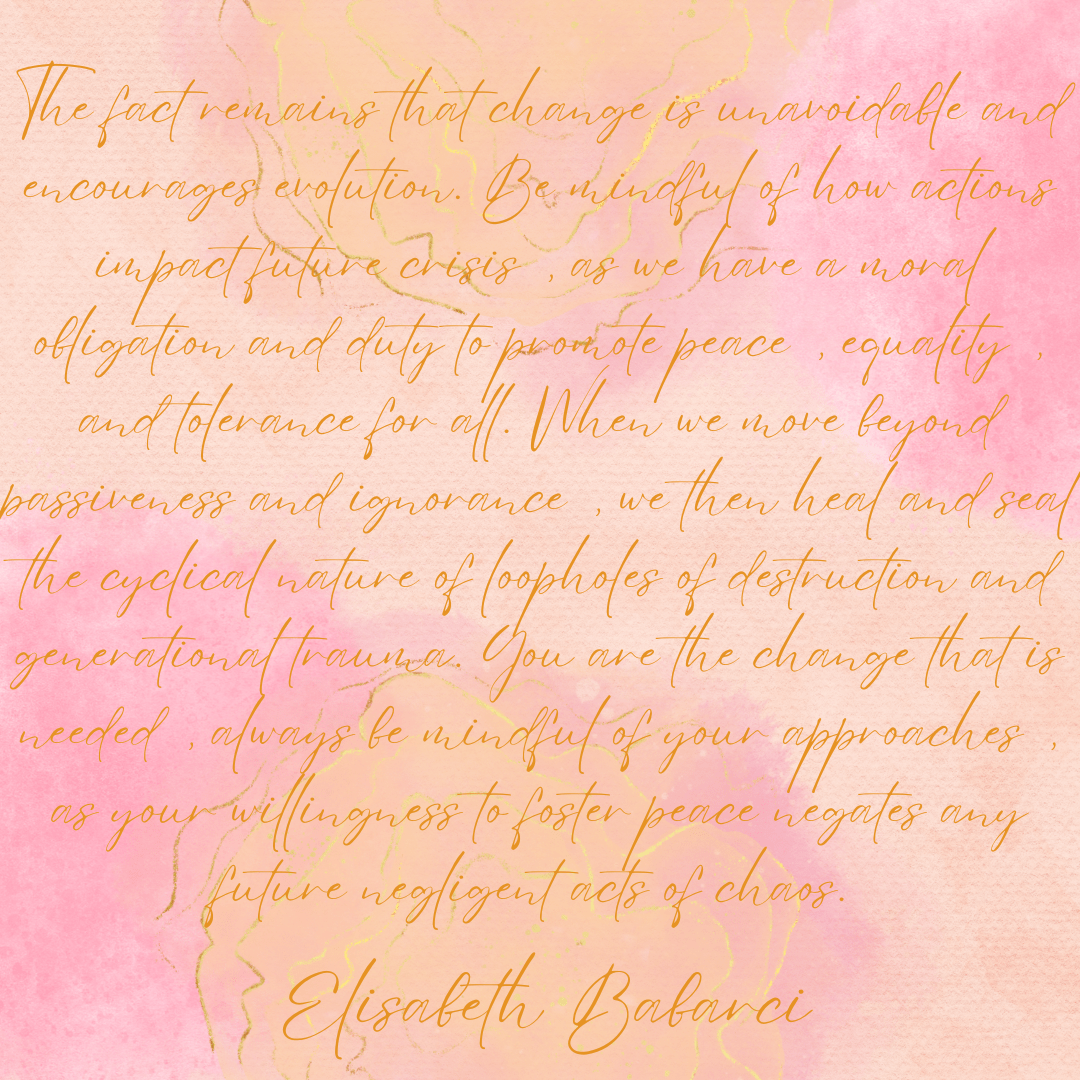 The fact remains that change is unavoidable and
encourages evolution. Be mindful of how actions
impact future crisis , as we have a moral
obligation and duty to promote peace , equality ,
and tolerance for all. When we move beyond
passiveness and ignorance , we then heal and seal
the cyclical nature of loopholes of destruction and
generational trauma. You are the change that is
needed , always be mindful of your approaches ,
as your willingness to foster peace negates any
future negligent acts of chaos.
Elisabeth Babarci